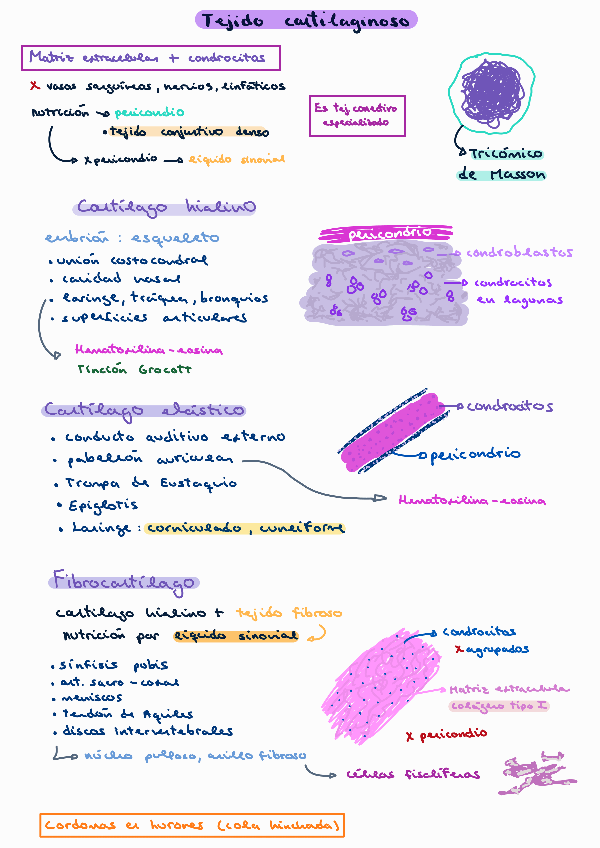 Tejido cartilaginoso
Matriz extracelular + condrocitos
x vasos sanguíneos, nervios, linfáticos
nutrición → pericondio
• tejido conjuntivo denso
→ x pericondio → líquido sinovial
Es tej. conectivo
especializado
Tricómico
de Masson
Cartílago hialino
embrión : esqueleto
• unión costocondral
• cavidad nasal
• laringe, tráquea, bronquios
• superficies articulares
Hematoxilina-eosina
Tinción Grocott
pericondrio
condroblastos
condrocitos
en lagunas
Cartílago elástico
• conducto auditivo externo
• pabellón auricular
• Trompa de Eustaquio
• Epiglotis
• Laringe : corniculado, cuneiforme
condrocitos
pericondrio
Hematoxilina-eosina
Fibrocartílago
cartílago hialino + tejido fibroso
nutrición por líquido sinovial
• sínfisis pubis
• art. sacro-coxal
• meniscos
• tendón de Aquiles
• discos intervertebrales
→ núcleo pulposo, anillo fibroso
condrocitos
x agrupados
Matriz extracelular
colágeno tipo I
x pericondio
células fisalíferas
Cordomas en hurones (cola hinchada)